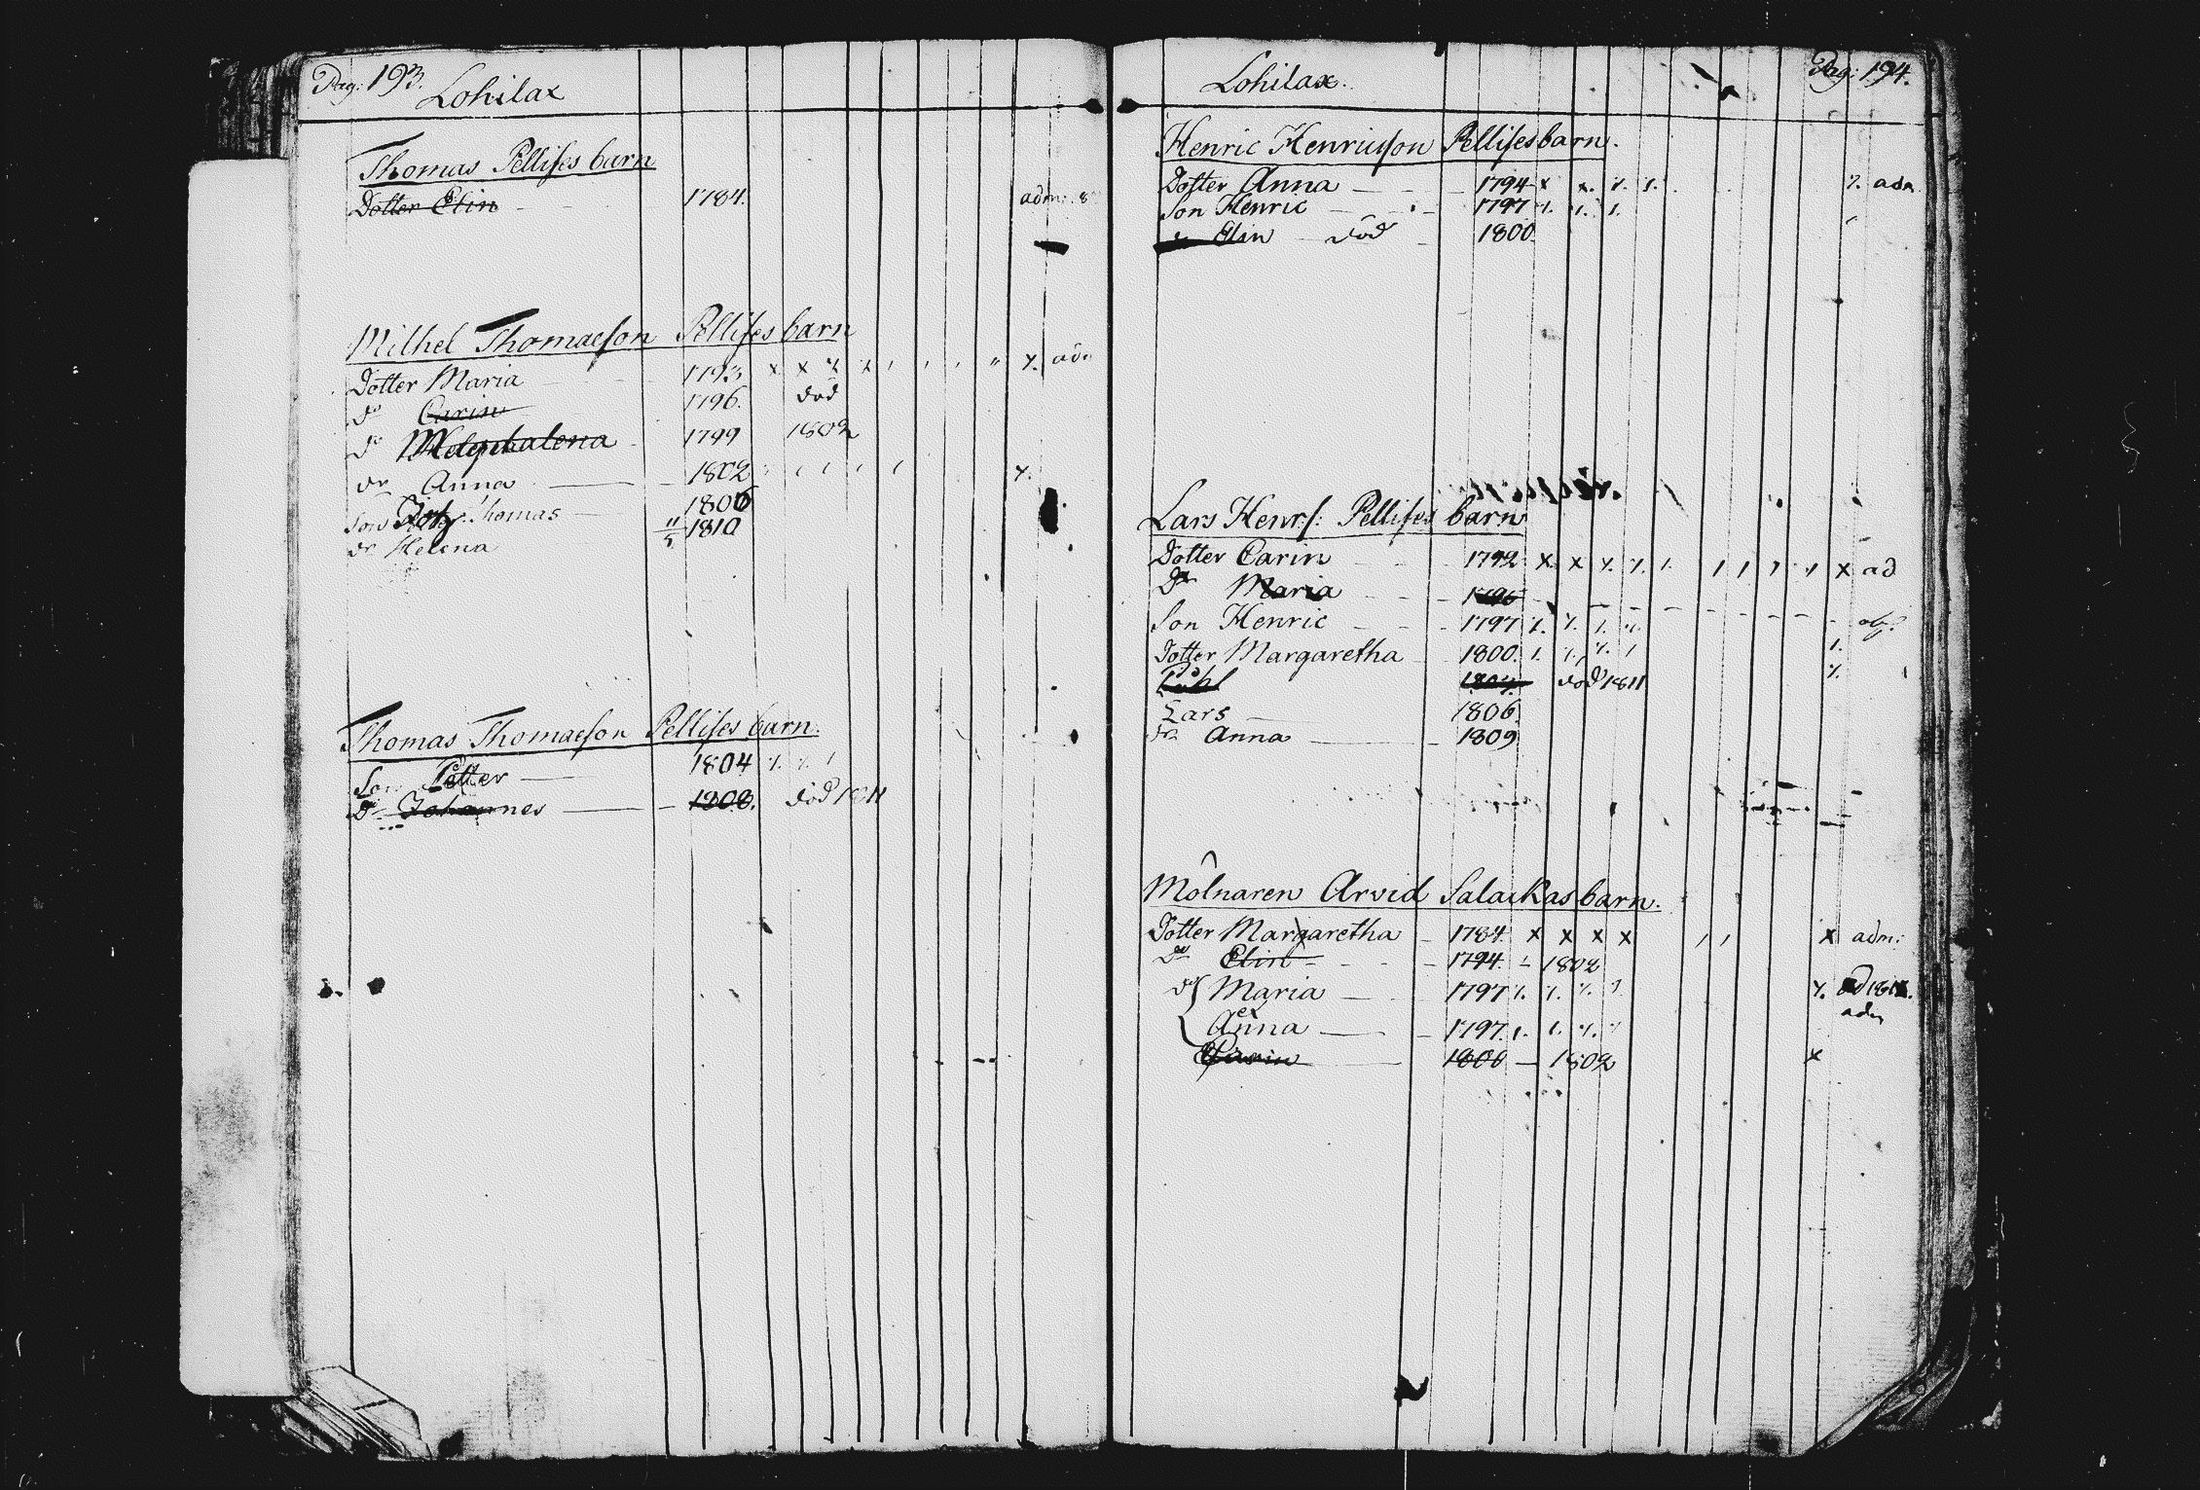 Pag: 193. Lohilax
Thomas Pellises barn
Dotter Elin 1784. adm:
Mikhel Thomaesson Pellises barn
Dotter Maria 1793 x x x x
do Carin 1796. död
do Magdalena 1799 1802
do Anna 1802
Son Thomas 1806
do Helena 11/5 1810
Thomas Thomaesson Pellises barn.
Son Petter 1804
do Johannes 1808. död 1811
Lohilax. Pag: 194.
Henric Henricsson Pellises barn.
Dotter Anna 1794 x x. adm
Son Henric 1797
do Elin död 1800.
Lars Henrs: Pellises barn
Dotter Carin 1792 x x x ad
do Maria 1796
Son Henric 1797
Dotter Margaretha 1800.
död 1811
Lars 1806.
do Anna 1809
Mölnaren Arvid Salackas barn.
Dotter Margaretha 1784 x x x x x adm:
do Elin 1794. 1802
do Maria 1797
Anna 1797. adm
Carin 1800 1802 x